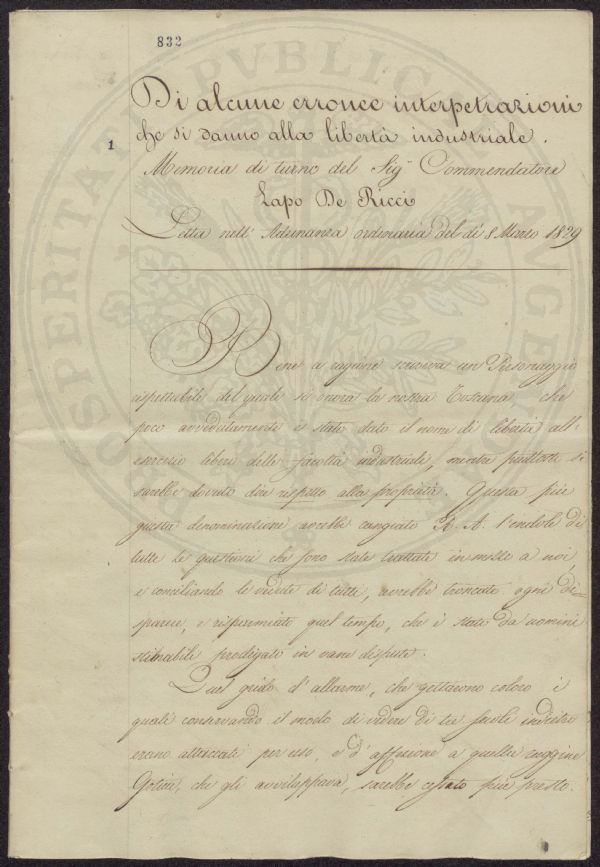 832
Di alcune erronee interpetrazioni
che si danno alla libertà industriale.
1
Memoria di turno del Sigr Commendatore
Lapo De Ricci
Letta nell' Adunanza ordinaria del dì 8 Marzo 1829
Bene a ragione scriveva un Personaggio
rispettabile del quale si onora la nostra Toscana, che
poco avvedutamente è stato dato il nome di libertà all'
esercizio libero delle facoltà industriale, mentre piuttosto si
sarebbe dovuto dire rispetto alla proprietà. Questa più
giusta denominazione avrebbe cangiato R. A. l'indole di
tutte le questioni che sono state trattate in mezzo a noi,
e conciliando le vedute di tutti, avrebbe troncato ogni di=
sparere, e risparmiato quel tempo, che è stato da uomini
stimabili prodigato in vane dispute.
Quel grido d'allarme, che gettarono coloro i
quali conservando il modo di vedere di tre secoli indietro
erano attaccati per uso, e d'affezione a quella ruggine
Gotica, che gli avviluppava, sarebbe cessato più presto.
PROSPERITATI PVBLICAE AVGENDAE